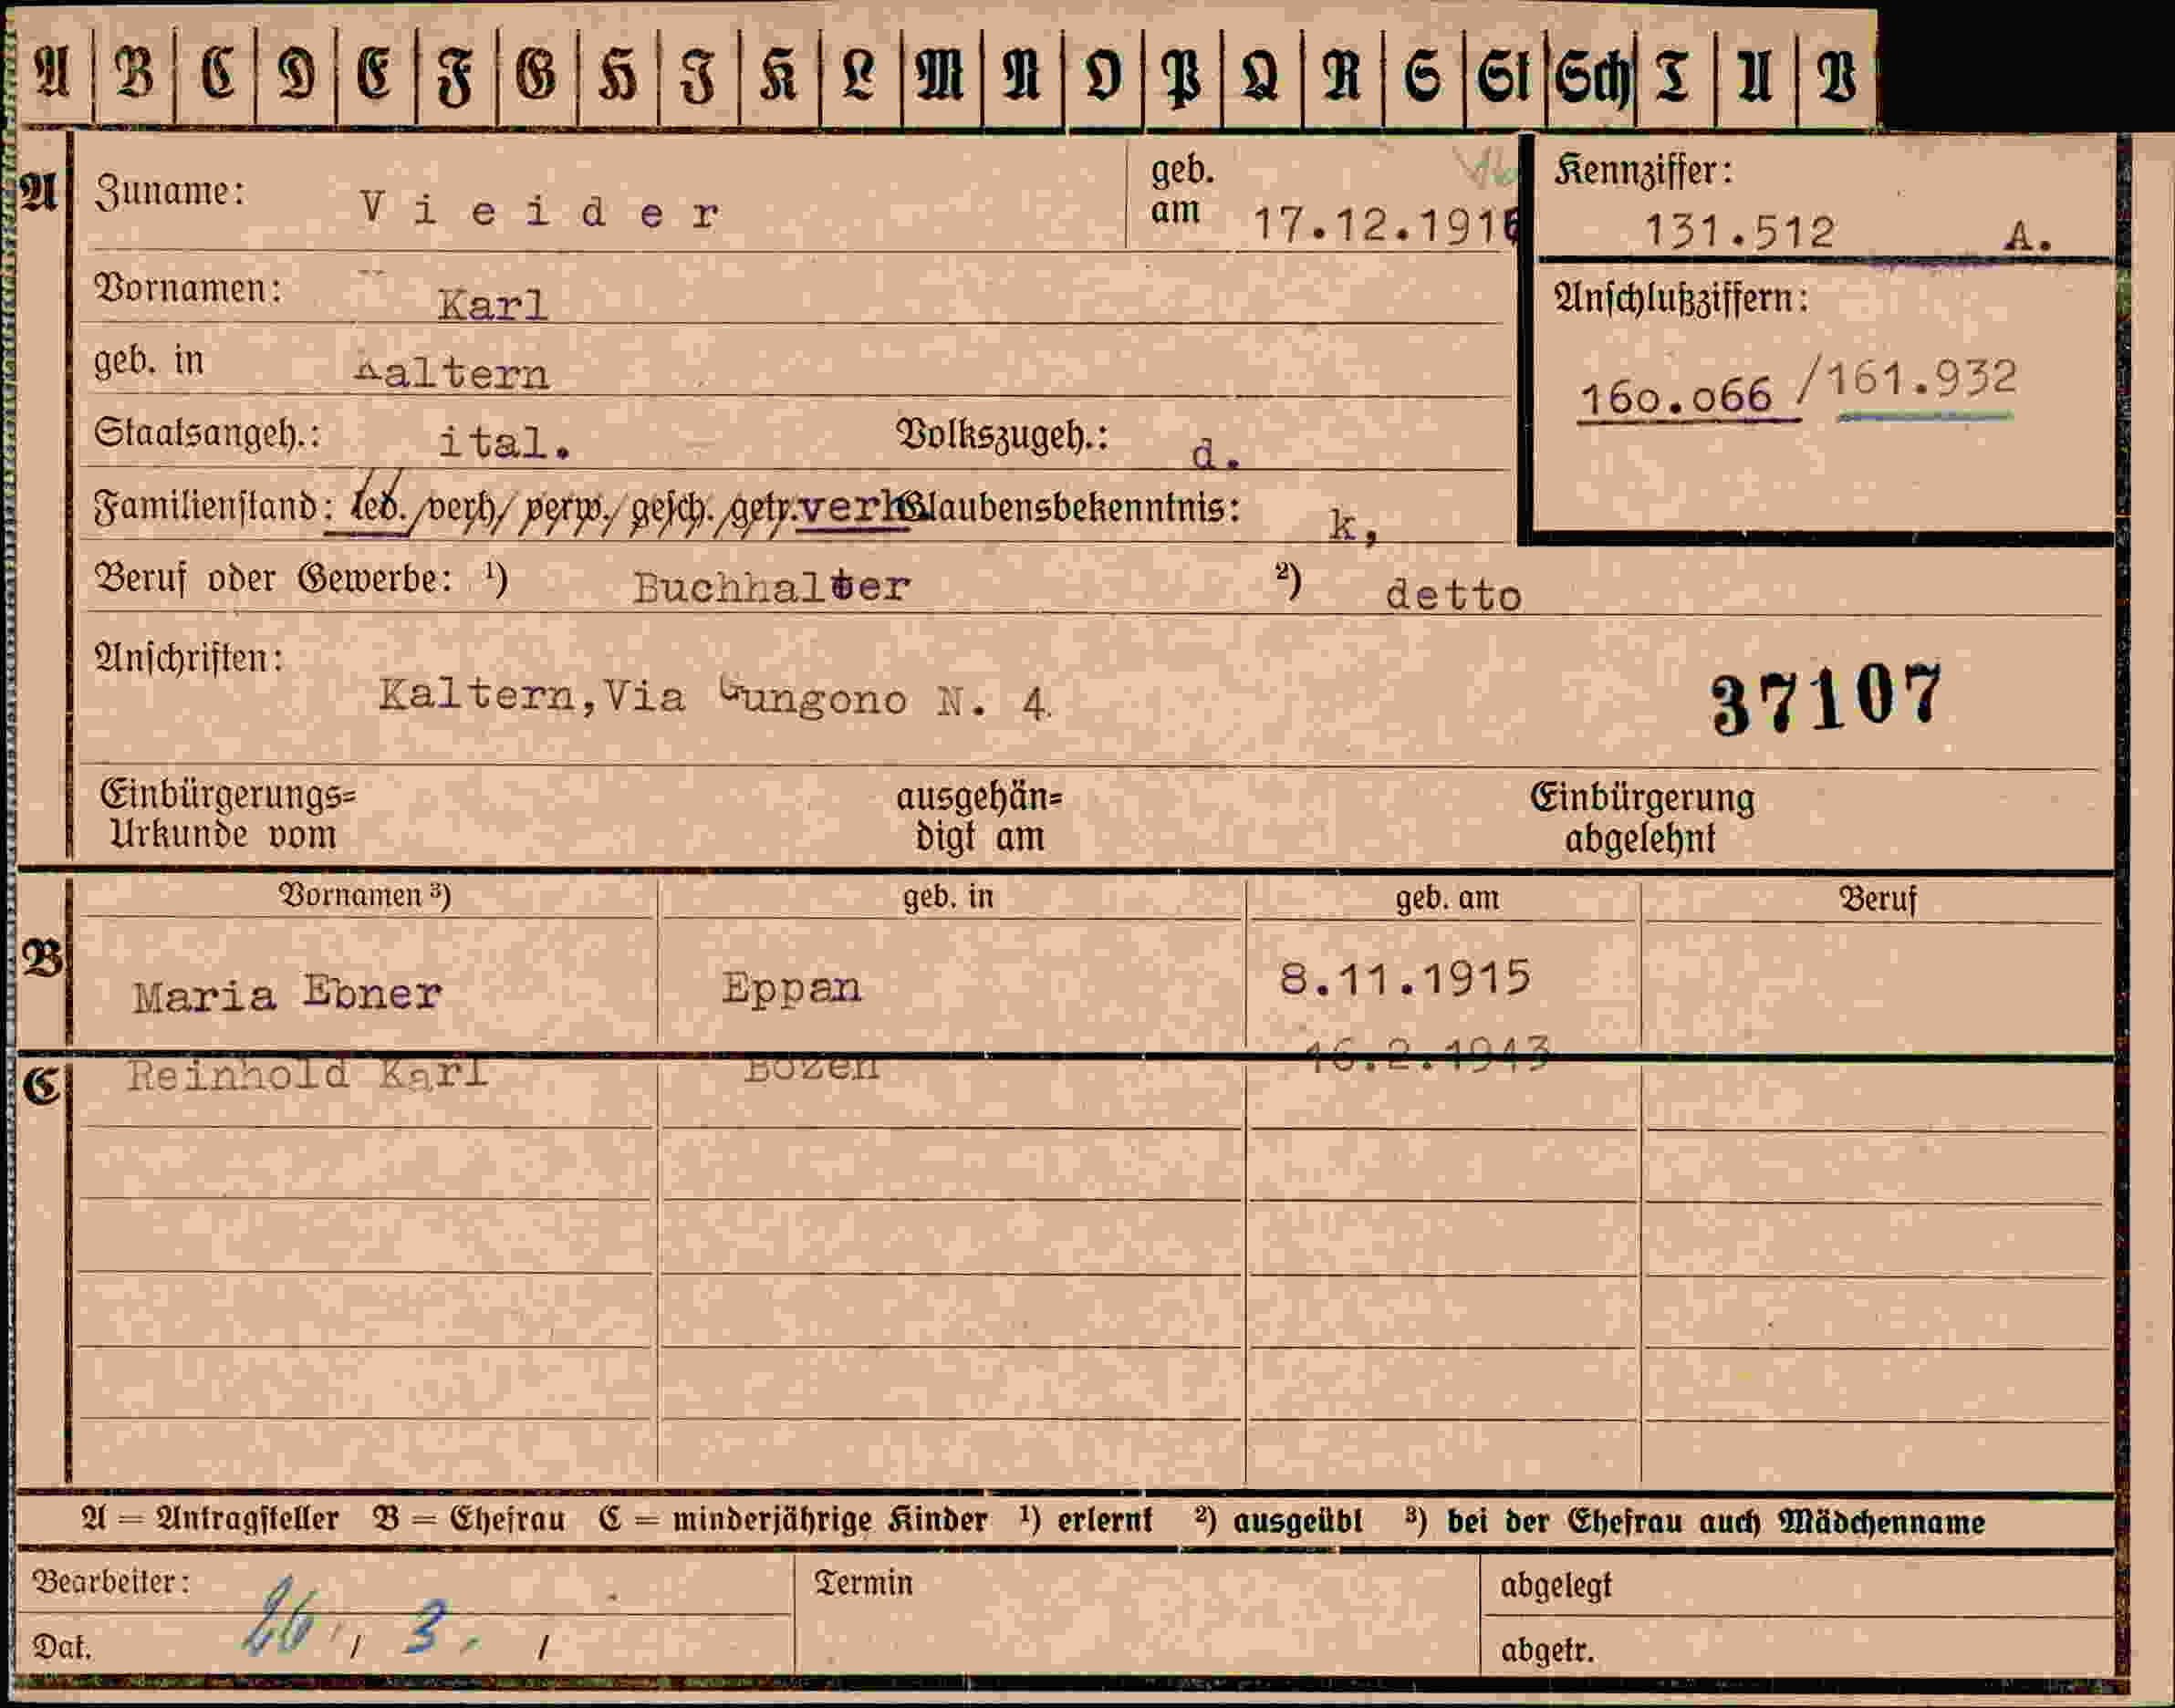 A B C D E F G H J K L M N O P Q R S St Sch T U V
A
Zuname: Vieider
geb. am 17.12.1916
Kennziffer: 131.512 A.
Vornamen: Karl
Anschlußziffern:
160.066 / 161.932
geb. in Kaltern
Staatsangeh.: ital. Volkszugeh.: d.
Familienstand: led./verh/verw./gesch./getr. verh Glaubensbekenntnis: k,
Beruf oder Gewerbe: ¹) Buchhalter ²) detto
Anschriften: Kaltern, Via Gungono N. 4.
37107
Einbürgerungs=
Urkunde vom
ausgehän=
digt am
Einbürgerung
abgelehnt
B
Vornamen ³) geb. in geb. am Beruf
Maria Ebner Eppan 8.11.1915
C
Reinhold Karl Bozen 16.2.1943
A = Antragsteller B = Ehefrau C = minderjährige Kinder ¹) erlernt ²) ausgeübt ³) bei der Ehefrau auch Mädchenname
Bearbeiter:
Termin
abgelegt
Dat. 26 / 3. /
abgetr.